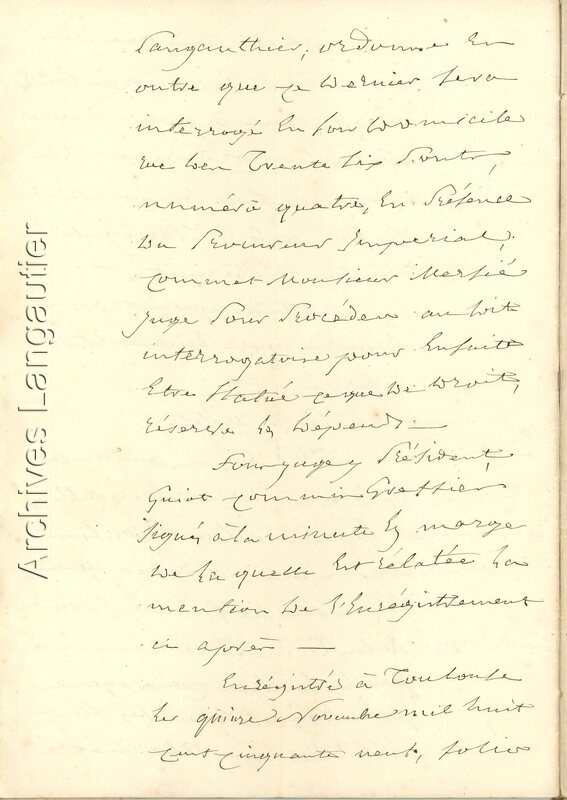 Langauthier, ordonne En
outre que ce dernier sera
interrogé En son domicile
rue des Trente six Ponts,
numéro quatre, En Présence
du Procureur Impérial,
commet Monsieur
Juge Pour Procéder au Dit
interrogatoire pour Ensuite
Etre Statué ce que de droit,
réserve les dépends —
Président,
Guiot commis Greffier
Signés à la minute En marge
de la quelle Est rélatée la
mention de l'Enrégistrement
ci après —
Enrégistré à Toulouse
le quinze Novembre mil huit
cent cinquante neuf, folio
Archives Langautier